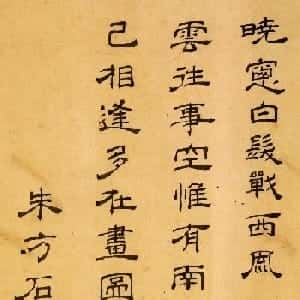 曉窓白髮戰西風
雲往事空惟有南
已相逢多在畫圖
朱方石